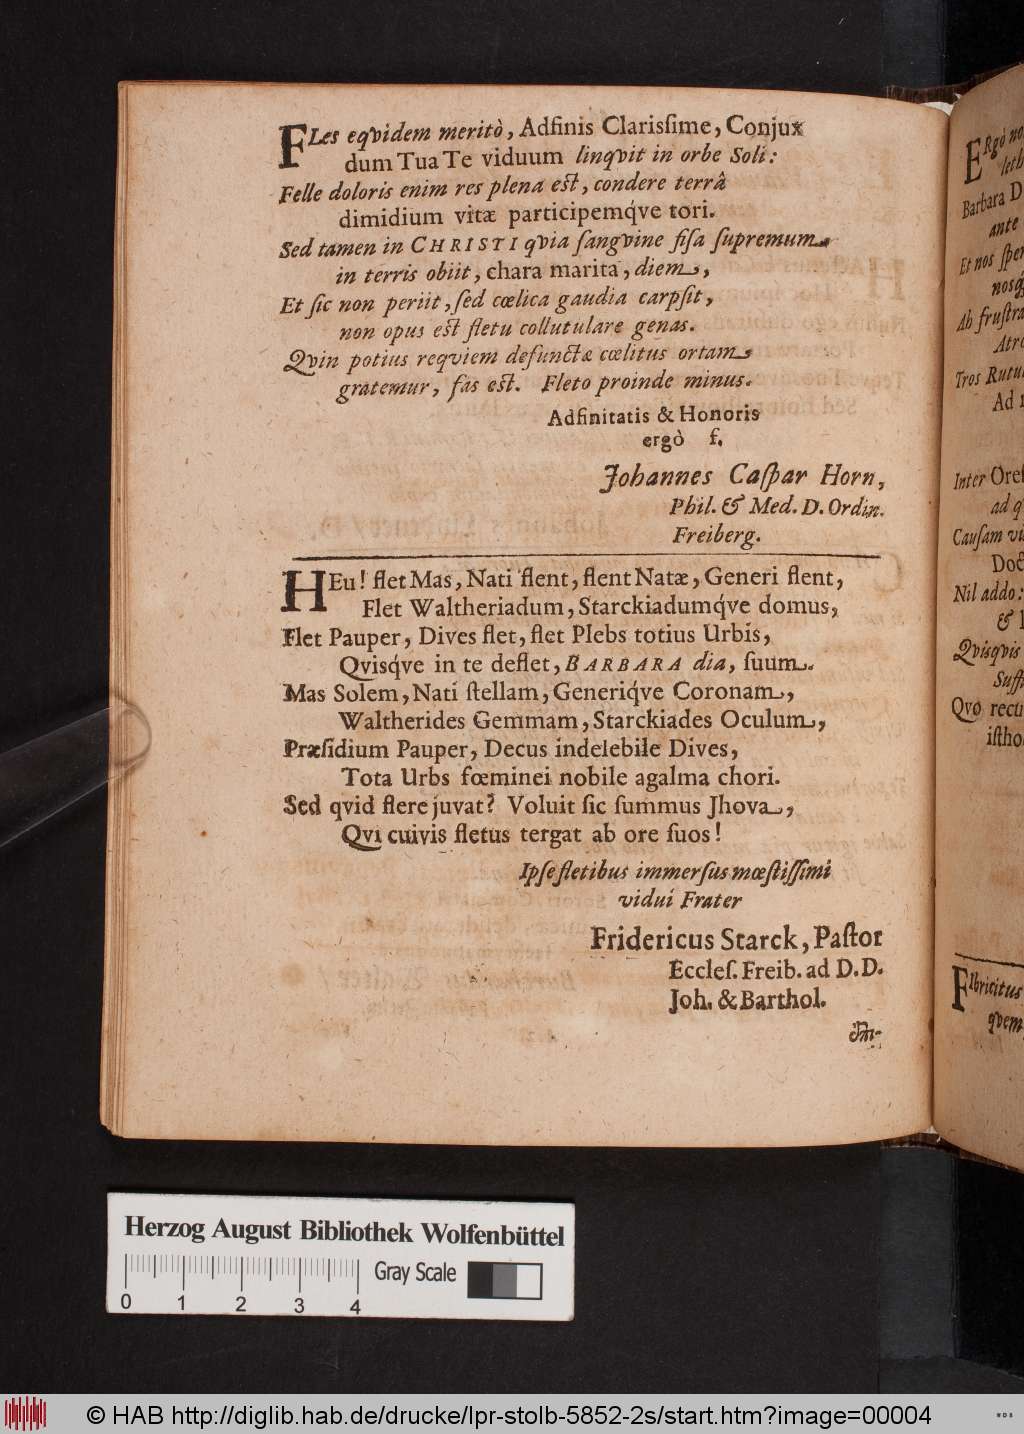 FLes eqvidem meritò, Adfinis Clarisſime, Conjux
dum Tua Te viduum linqvit in orbe Soli:
Felle doloris enim res plena eſt, condere terrâ
dimidium vitæ participemq́ve tori.
Sed tamen in CHRISTI qvia ſangvine fiſa ſupremum
in terris obiit, chara marita, diem,
Et ſic non periit, ſed cœlica gaudia carpſit,
non opus eſt fletu collutulare genas.
Qvin potius reqviem defunctæ cœlitus ortam
gratemur, fas eſt. Fleto proinde minus.
Adfinitatis & Honoris
ergò f.
Johannes Caſpar Horn,
Phil. & Med. D. Ordin.
Freiberg.
HEu! flet Mas, Nati flent, flent Natæ, Generi flent,
Flet Waltheriadum, Starckiadumq́ve domus,
Flet Pauper, Dives flet, flet Plebs totius Urbis,
Qvisq́ve in te deflet, BARBARA dia, ſuum.
Mas Solem, Nati ſtellam, Generiq́ve Coronam,
Waltherides Gemmam, Starckiades Oculum,
Præſidium Pauper, Decus indelebile Dives,
Tota Urbs fœminei nobile agalma chori.
Sed qvid flere juvat? Voluit ſic ſummus Jhova,
Qvi cuivis fletus tergat ab ore ſuos!
Ipſe fletibus immerſus mœſtiſſimi
vidui Frater
Fridericus Starck, Paſtor
Eccleſ. Freib. ad D.D.
Joh. & Barthol.
ERgò
Barbara D
ante
Et nos
Ab fruſtra
Tros
Ad
Inter
ad q
Cauſam
Nil addo:
&
Qviſqvis
Qvo
qvem
Herzog August Bibliothek Wolfenbüttel
Gray Scale
0 1 2 3 4
© HAB http://diglib.hab.de/drucke/lpr-stolb-5852-2s/start.htm?image=00004